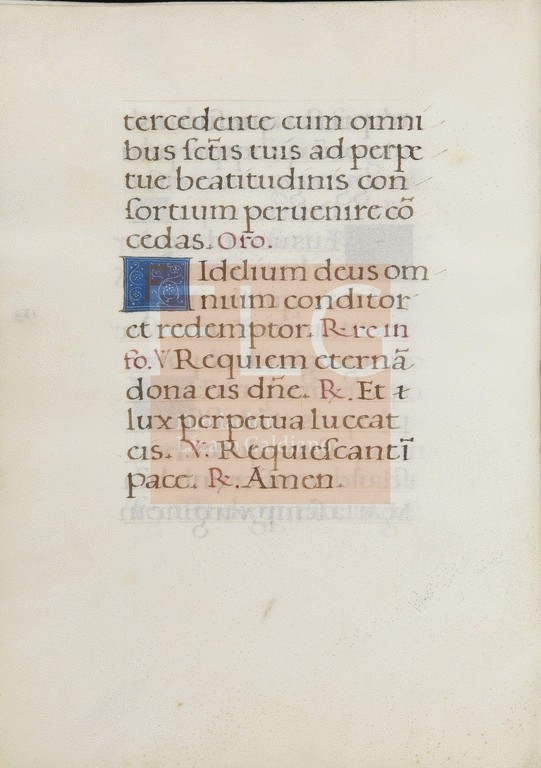 tercedente cum omni
bus sctīs tuis ad perpe
tue beatitudinis con
sortium peruenire cō
cedas. Oro.
Fidelium deus om
nium conditor
et redemptor. ℟. re in
fo. ℣ Requiem eternā
dona eis dn̄e. ℟. Et
lux perpetua luceat
eis. ℣. Requiescant ī
pace. ℟. Amen.
FLG